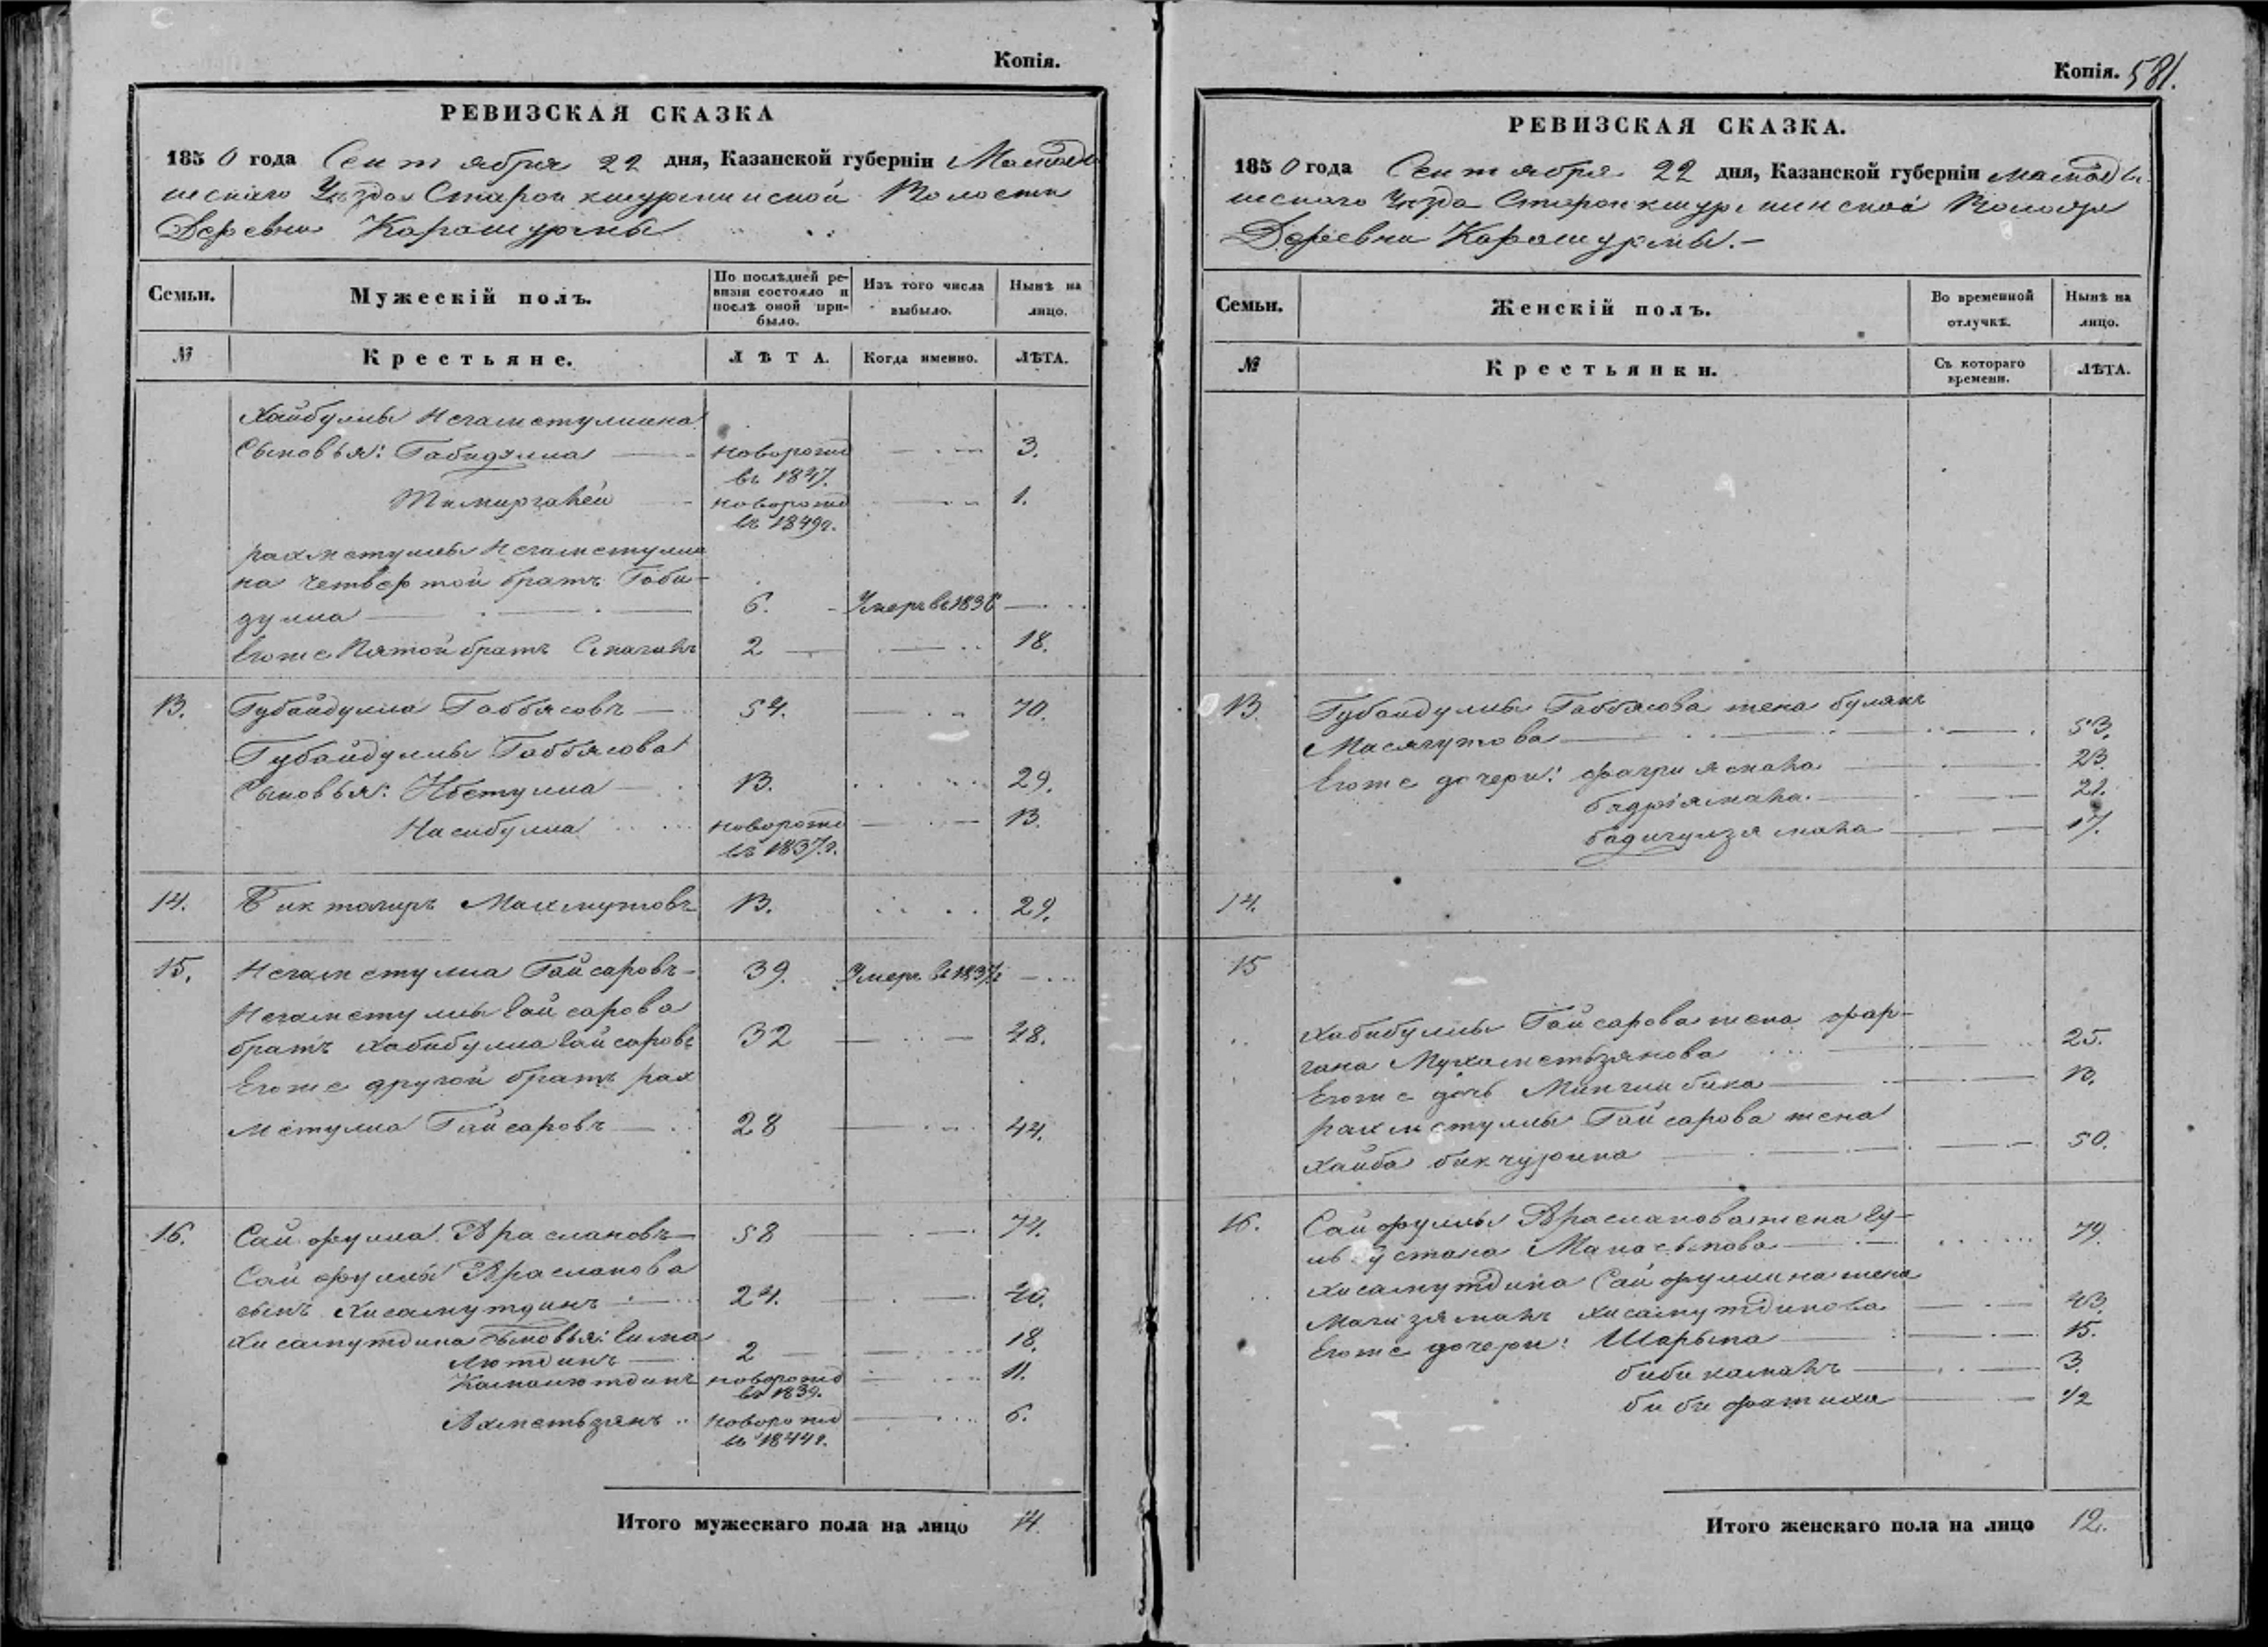 Копія.
РЕВИЗСКАЯ СКАЗКА
1850 года Сентября 22 дня, Казанской губерніи Мамады
шскаго Уѣзда Старокшурминской Волости
Деревни Карашурмы
Семьи. Мужескій полъ. По послѣдней ре-
визіи состояло и
послѣ оной при-
было. Изъ того числа
выбыло. Нынѣ на
лицо.
№ Крестьяне. ЛѢТА. Когда именно. ЛѢТА.
Хайбуллы Негаметуллина
Сыновья: Габидулла новорожд 3.
въ 1847.
Тимиргалей новорожд 1.
въ 1849г.
рахметуллы Негаметулли
на четвертой братъ Габи-
дулла 6. Умеръ въ 1836
Егоже Пятой братъ 2 18.
13. Губайдулла Габбясовъ 54. 70.
Губайдуллы Габбясова
Сыновья: 13. 29.
Насибулла новорожд 13.
въ 1837.г.
14. Биктимиръ Махмутовъ 13. 29.
15. Негаметулла Гайсаровъ 39. Умеръ въ 1837г
Негаметуллы Гайсарова
братъ Хабибулла Гайсаровъ 32 48.
Егоже другой братъ рах
метулла Гайсаровъ 28 44.
16. Сайфулла Араслановъ 58 74.
Сайфуллы Арасланова
сынъ Хисамутдинъ 24. 40.
Хисамутдина Сыновья: Гима 18.
лютдинъ 2
Камалютдинъ новорожд 11.
въ 1839.
Ахметьзянъ новорожд 6.
въ 1844г.
Итого мужескаго пола на лицо 14.
Копія. 581.
РЕВИЗСКАЯ СКАЗКА.
1850 года Сентября 22 дня, Казанской губерніи Мамады
шскаго Уѣзда Старокшурминской Волости
Деревни Карашурмы.
Семьи. Женскій полъ. Во временной
отлучкѣ. Нынѣ на
лицо.
№ Крестьянки. Съ котораго
времени. ЛѢТА.
13. Губайдуллы Габбясова жена булякъ
Масягутова 53.
Егоже дочери: фахриямала 23.
бадриямала. 21.
бадигулзямала 17.
14.
15
Хабибуллы Гайсарова жена фар-
гана Мухаметьзянова 25.
Егоже дочь Минглибика 13.
рахметуллы Гайсарова жена
Хайба бикчурина 50.
16. Сайфуллы Арасланова жена Гу-
льбустана Манасыпова 79.
Хисамутдина Сайфуллина жена
Магизямалъ Хисамутдинова 43.
Егоже дочери: Шарыпа 15.
бибикамалъ 3.
бибифатиха 1/2
Итого женскаго пола на лицо 12.